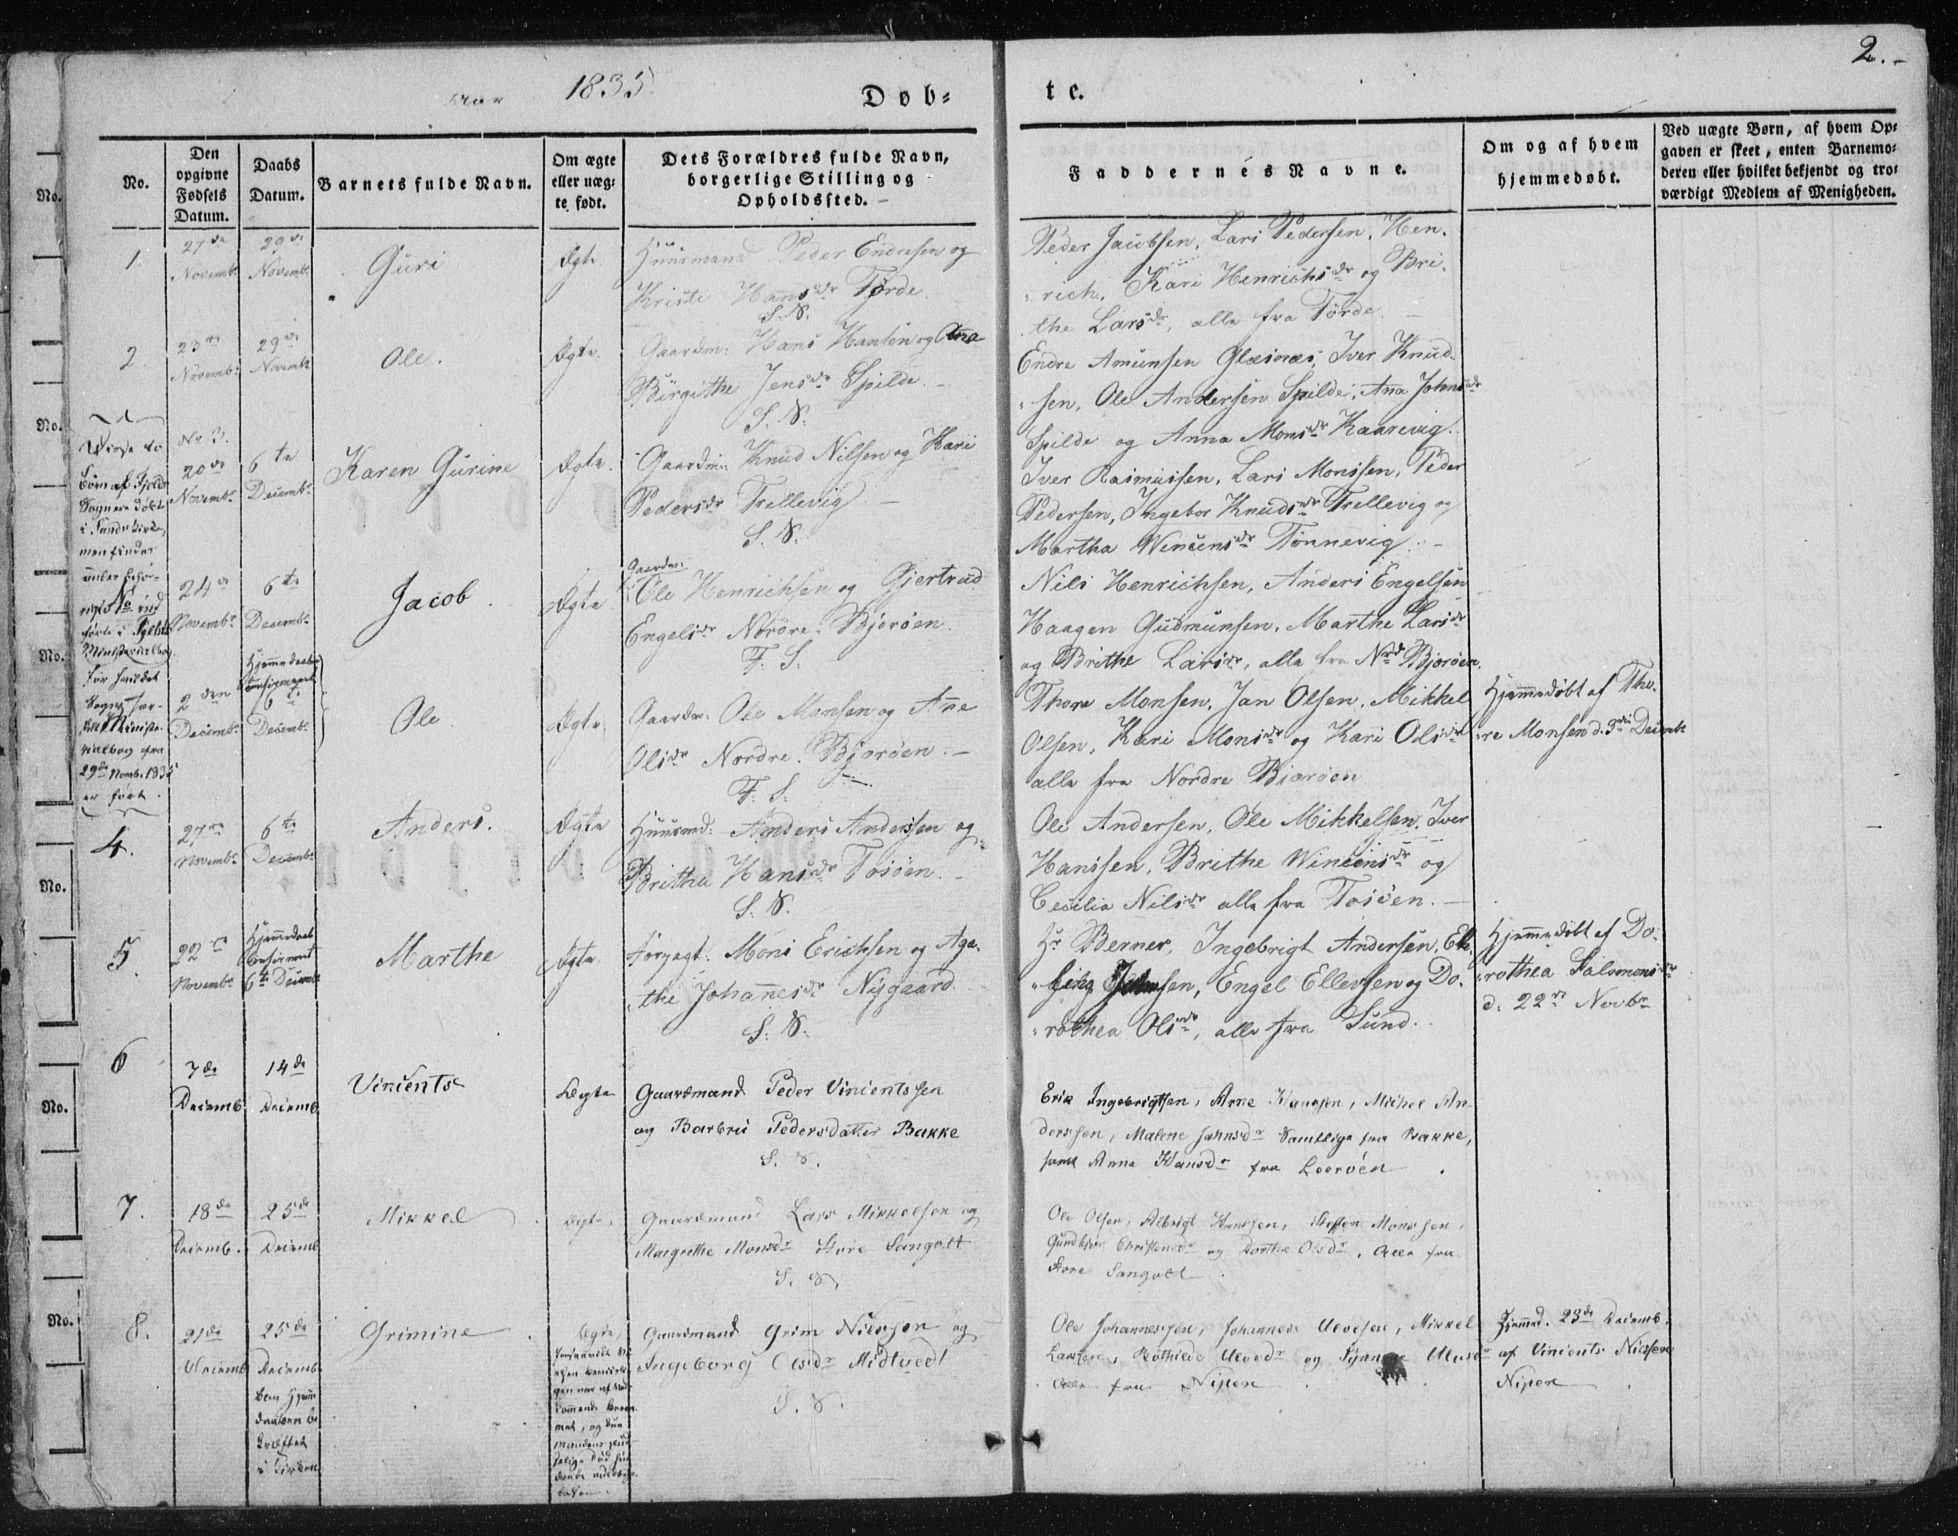 2.
Aar 1835.
Døb-
te.
No.
Den
opgivne
Fødsels
Datum.
Daabs
Datum.
Barnets fulde Navn.
Om ægte
eller uæg-
te født.
Dets Forældres fulde Navn,
borgerlige Stilling og
Opholdssted.
Faddernes Navne.
Om og af hvem
hjemmedøbt.
Ved uægte Børn, af hvem Op-
gaven er skeet, enten Barnemo-
deren eller hvilket bekjendt og tro-
værdigt Medlem af Menigheden.
1.
27de
Novembr
29de
Novembr
Guri
Ægte
Huusmand Peder Endresen og
Kristi Hansdr Førde.
S. S.
Peder Jacobsen, Lars Pedersen, Hen-
rich, Kari Henrichsdr og Bri-
the Larsdr, alle fra Førde.
2.
23de
Novembr
29de
Novembr
Ole.
Ægte.
Gaardm: Hans Hansen og Ana
Birgithe Jensdr Spilde.
S. S.
Endre Amunsen Glæsnæs, Iver Knud-
sen, Ole Andersen Spilde, Ana Johnsdr
Spilde og Anna Monsdr Kaarevig.
No 3.
20de
Novembr
6te
Decembr
Karen Gurine
Ægte.
Gaardm: Knud Nilsen og Kari
Pedersdr Trellevig
S. S.
Iver Rasmussen, Lars Monssen, Peder
Pedersen, Ingebor Knudsdr Trellevig og
Martha Wincensdr Tønnevig.
Disse to
Børn af Fjeld
Sogn ere døbte
i Sunds Kirke,
men findes
under behø-
rigt No ind
førte i Fjelds
Ministerialbog
for hvilket
Sogn sær-
skilt Ministe-
rialbog fra
29de Novembr 1835
er ført.
24de
Novembr
6te
Decembr
Jacob.
Ægte
Gaardm:
Ole Henrichsen og Gjertrud
Engelsdr Nordre Bjorøen.
F. S.
Nils Henrichsen, Anders Engelsen
Haagen Gudmunsen, Marthe Larsdr
og Brithe Larsdr, alle fra Nrd Bjorøen.
2den
Decembr
Hjemmedaaben
Confirmeret
6te
Decembr
Ole.
Ægte
Gaardm: Ole Monsen og Ane
Olsdr Nordre Bjorøen.
F. S.
Thore Monsen, Jan Olsen, Mikkel
Olsen, Kari Monsdr og Kari Olsdr
alle fra Nordre Bjorøen
Hjemmedøbt af Tho-
re Monsen d. 3die Decembr
4.
27de
Novembr
6te
Decembr
Anders.
Ægte
Huusmd: Anders Andersen og
Britha Hansdr Tosøen.
S. S.
Ole Andersen, Ole Mikkelsen, Iver
Hanssen, Brithe Wincensdr og
Cecilia Nilsdr alle fra Tosøen.
5.
22de
Novembr
Hjemmedaab
Confirmert
6te Decembr
Marthe
Ægte
Forpagt: Mons Erichsen og Aga-
the Johannesdr Nygaard
S. S.
Hr Berner, Ingebrigt Andersen,
Engel Ellevsen og Do-
rothea Olsdr, alle fra Sund.
Hjemmedøbt af Do-
rothea Salomonsdr
d. 22de Novbr
6
7de
Decemb.
14de
Decemb.
Vincents
Ægte
Gaardmand Peder Vincentssen
og Barbru Pedersdatter Bakke
S. S.
Erik Ingebrigtsen, Arne Hansen, Michel An-
dersen, Malene Johnsdr Samtlige fra Bakke,
samt Anna Hansdr fra Leerøen.
7.
18de
Decemb.
25de
Decemb.
Mikkel
Ægte.
Gaardmand Lars Mikkelsen og
Margrethe Monsdr Store Sangolt
S. S.
Ole Olsen, Albrigt Hanssen, Steffen Monssen,
Gundbjør Christensdr og Dorthe Olsdr, Alle fra
Store Sangolt.
8.
21de
Decemb
25de
Decemb.
Grimine
Ægte,
Gaardmand Grim Nielssen og
Ingeborg Olsdr Midtvedt
S. S.
Ole Johannessen, Johannes Ulvesen, Mikkel
Larssen, Bothilde Ulvesdr og Synneve
Alle fra Nipen.
Hjemmed. 23de Decemb.
af Vincents Nielsen
Nipen.